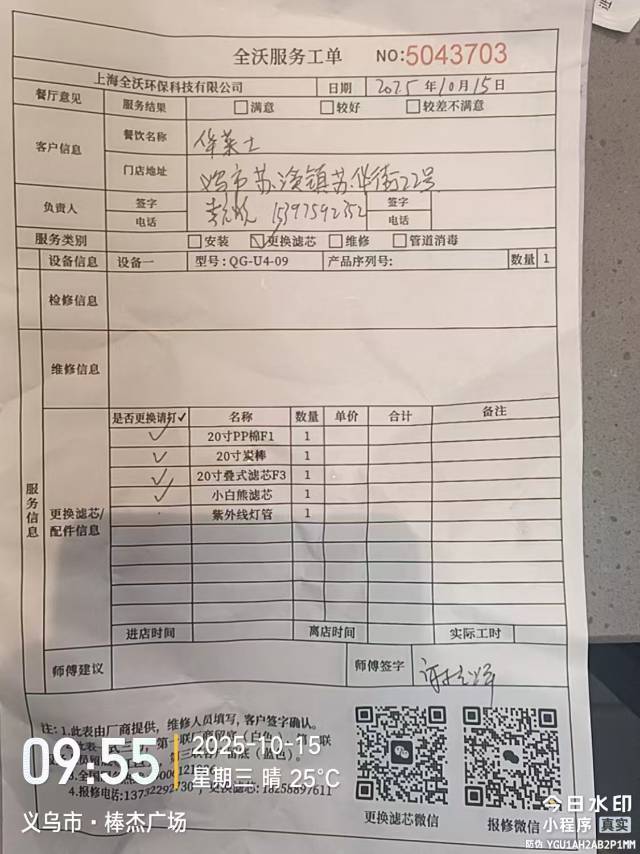 全沃服务工单 NO:5043703
上海全沃环保科技有限公司 日期 2025年10月15日
餐厅意见 服务结果 □满意 □较好 □较差不满意
客户信息 餐饮名称 华莱士
门店地址 义乌市苏溪镇苏华街22号
负责人 签字 签字
电话 15397592352 电话
服务类别 □安装 ☑更换滤芯 □维修 □管道消毒
设备信息 设备一 型号:QG-U4-09 产品序列号: 数量 1
检修信息
维修信息
服务信息
更换滤芯/配件信息
是否更换请打✓ 名称 数量 单价 合计 备注
✓ 20寸PP棉F1 1
✓ 20寸炭棒 1
✓ 20寸叠式滤芯F3 1
✓ 小白熊滤芯 1
紫外线灯管 1
进店时间 离店时间 实际工时
师傅建议 师傅签字
注: 1.此表由厂商提供，维修人员填写，客户签确认。
4.报修电话:13732292730 ，更换滤芯: 18258897611
更换滤芯微信 报修微信
09:55 2025-10-15
星期三 晴 25°C
义乌市·棒杰广场
今日水印
小程序 真实
防伪 YGU1AH2AB2P1MM